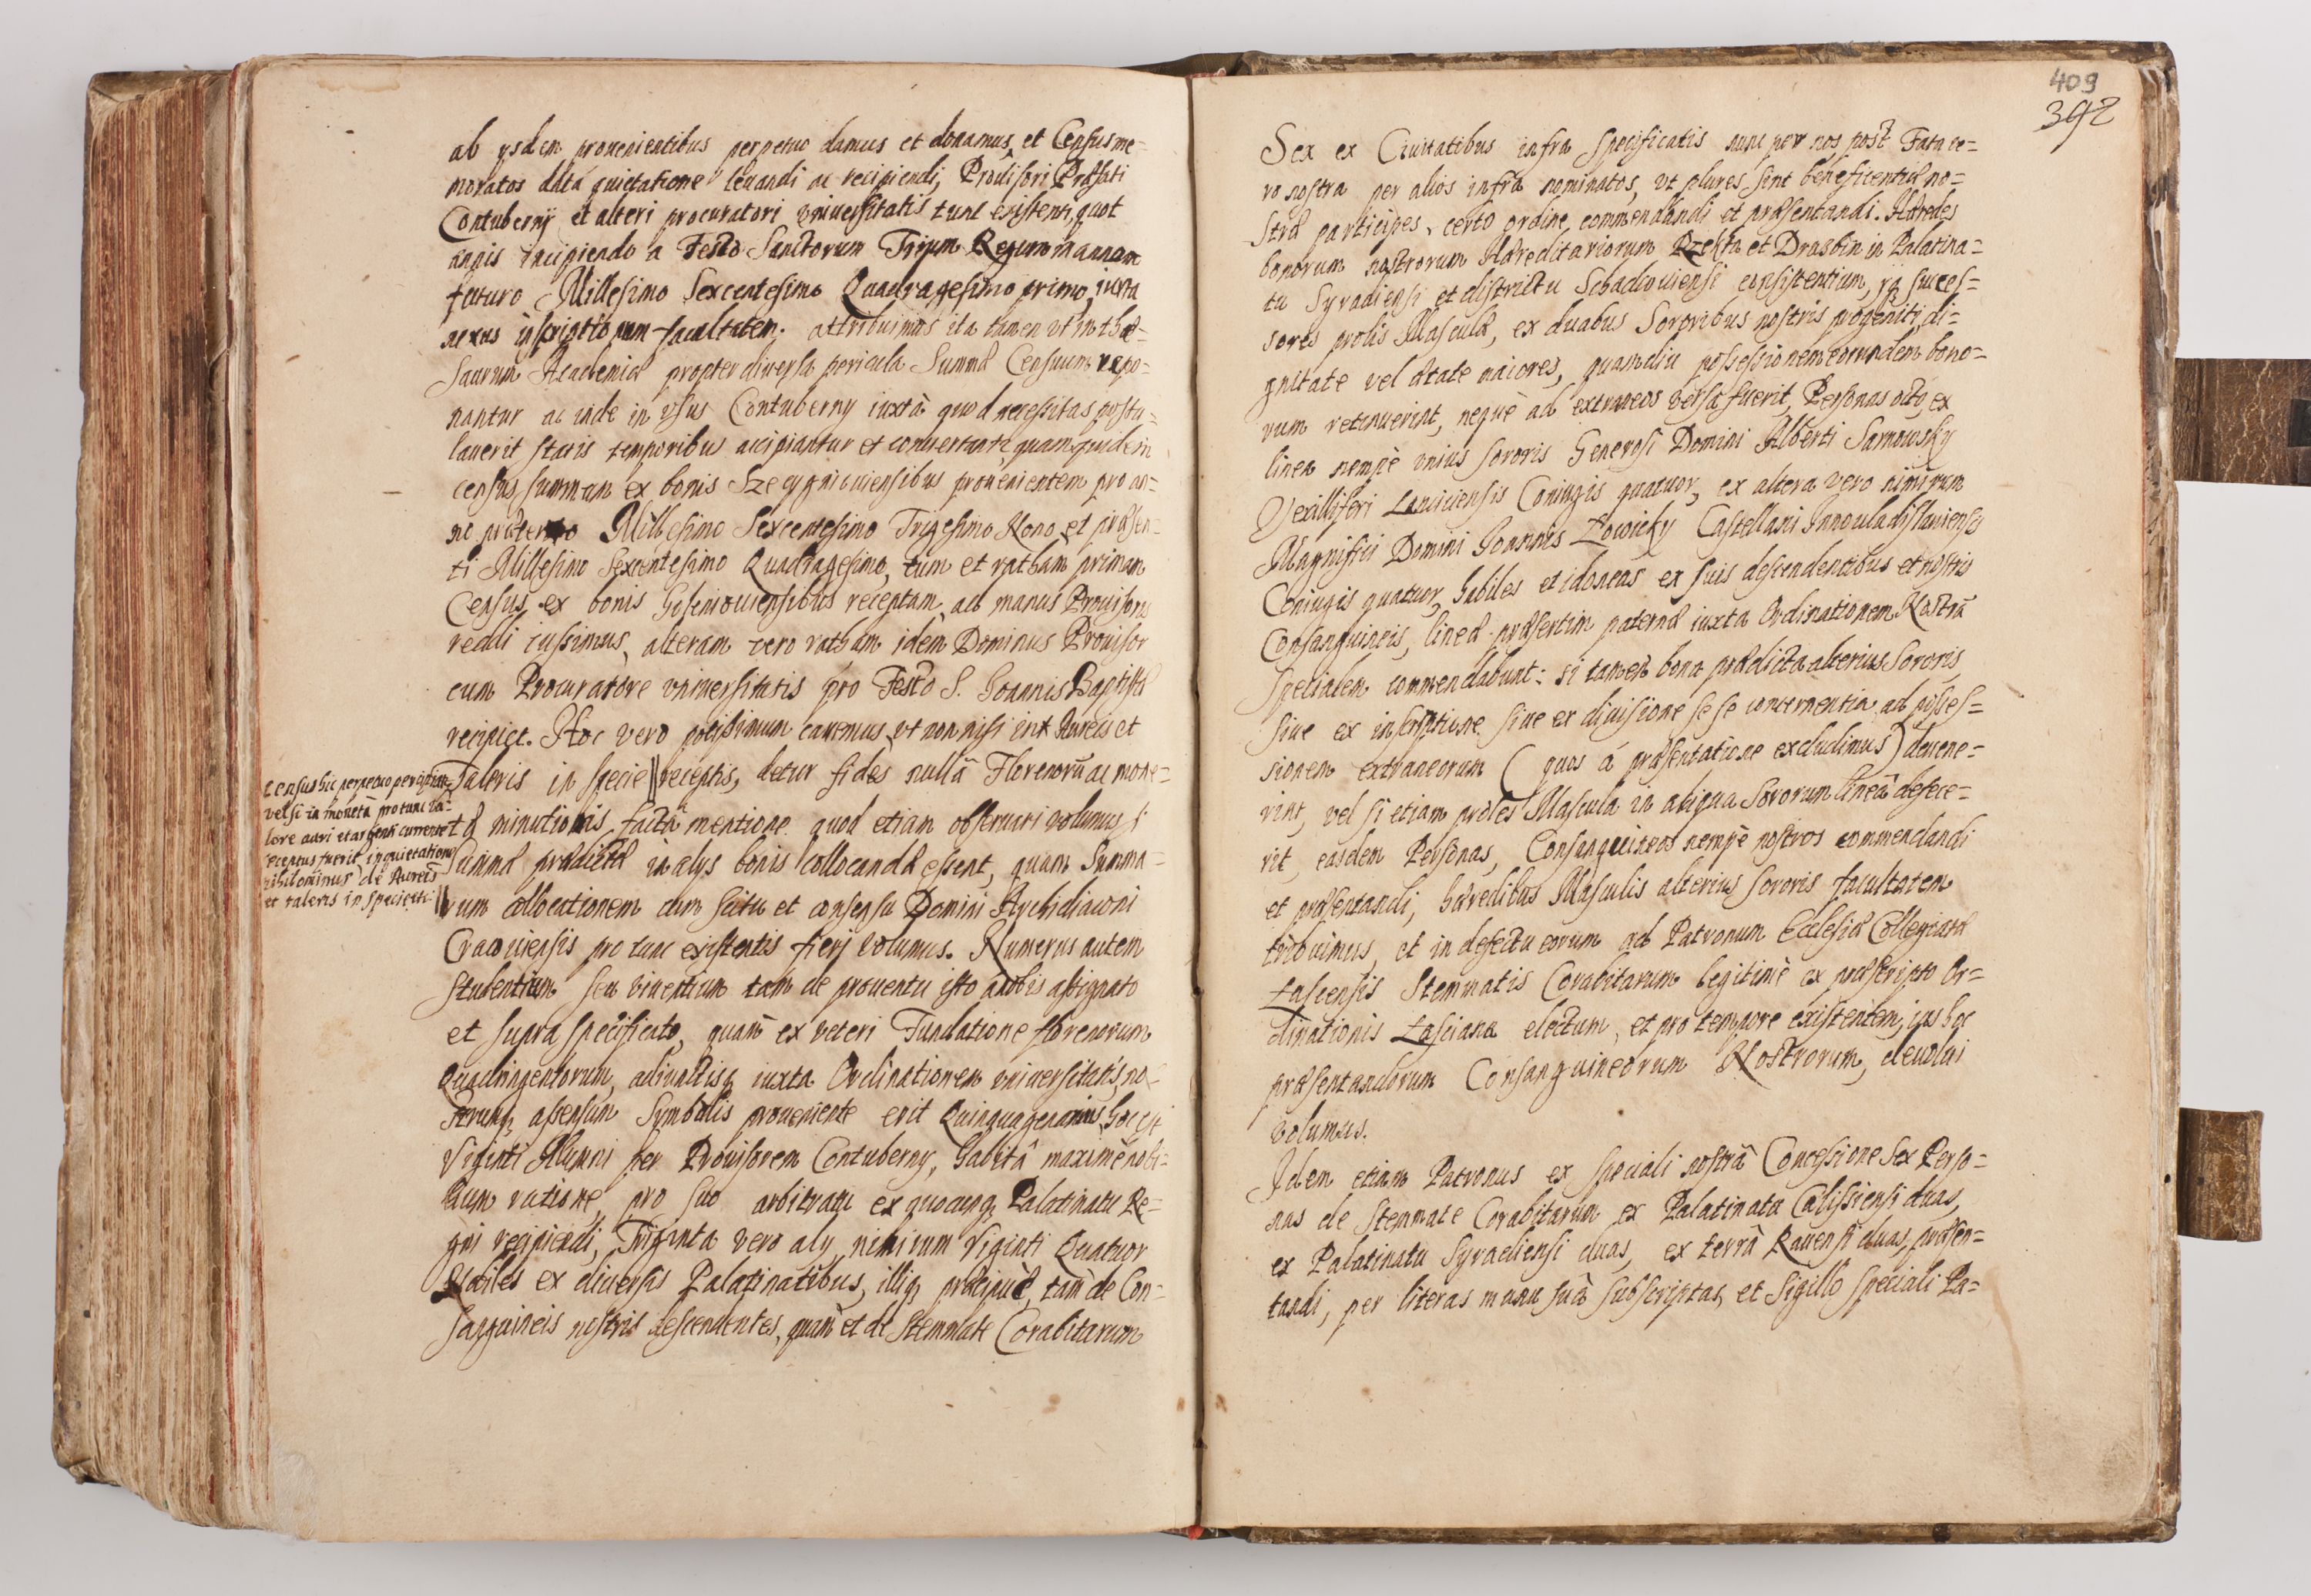 ab ysdem prouenientibus perpetuo damus et donamus, et Census me=
moratos datâ quietatione leuandi ac recipiendi, Prouisori Præfati
Contuberny et alteri procuratori vniuersitatis tunc existenti, quot
annis incipiendo a Festo Sanctorum Trium Regum in annum
futuro Millesimo Sexcentesimo Quadragesimo primo, iuxta
nexus inscriptionum facultatem. attribuimus ita tamen vt in thæ=
saurum Academiæ propter diuersa pericula Summæ Censuum repo=
nantur ac inde in vsus Contuberny iuxtà quod necessitas postu=
lauerit statis temporibus accipiantur et conuertantr, quam quidem
census, summam ex bonis prouenientem pro an=
no præterito Millesimo Sexcentesimo Trigesimo Nono, et præsen=
ti Millesimo Sexcentesimo Quadragesimo, tum et ratham primam
Census, ex bonis receptam, ad manus Prouisoris
reddi iussimus, alteram vero ratham idem Dominus Prouisor
cum Procuratore vniuersitatis pro Festo S. Joannis Baptistæ
recipiet. Hoc vero potissimum cauemus, vt non nisi in Aureis et
Taleris in specie || receptis, detur fides nullâ Florenorũ ac mone=
tæ minutioris factâ mentione. quod etiam obseruari volumus si
Summæ prædictæ in alys bonis collocandæ essent, quam Summa=
rum collocationem cum scitu et consensu Domini Archidiaconi
Cracouiensis pro tunc existentis fieri volumus. Numerus autem
Studentium seu viuentium tam de prouentu isto à nobis assignato
et supra specificato, quam ex veteri Fundatione florenorum
Quadringentorum, adiunctisq iuxta Ordinationem vniuersitatis, no
strumq assensum Symbolis proueniente erit Quinquagenarius, hoc est
Viginti Alumni per Prouisorem Contuberny, habitâ maximè nobi=
lium ratione, pro suo arbitratu ex quocunq Palatinatu Re=
gni recipiendi, Triginta vero aly, nimirum Viginti Quatuor
Nobiles ex diuersis Palatinatibus, illiq præcipuè, tam de Con=
sanguineis nostris descendentes, quam et de Stemmate Corabitarum
census hic perpetuo percipiatur
vel si in monetâ pro tunc va=
lore auri et argenti currente
receptus fuerit, in quietatione
nihilominus de Aureis
et taleris in specie etc ||
409
392
Sex ex Ciuitatibus infra specificatis nunc per nos post Fata ve=
ro nostra per alios infra nominatos, vt plures sint beneficentiæ no=
stræ participes, certo ordine commendandi et præsentandi. Hæredes
bonorum nostrorum Hæreditariorum Rzechta et Drasbin in Palatina=
tu Syradiensi et districtu consistentium, yq succes=
sores prolis Masculæ, ex duabus Sororibus nostris progeniti, di=
gnitate vel ætate maiores, quamdiu possessionem eorundem bono=
rum retinuerint, neque ad extraneos versa fuerit, Personas octo, ex
linea nempè vnius sororis Generosi Domini Alberti Sarnowsky
Vexilliferi Lanciciensis Coniugis quatuor, ex altera vero nimirum
Magnifici Domini Joannis Łowicky Castellani
Coniugis quatuor, habiles et idoneas ex suis descendentibus et nostris
Consanguineis, lineâ præsertim paternâ iuxta Ordinationem Nostrã
specialem commendabunt: si tamen bona prædicta alterius Sororis,
siue ex inscriptione siue ex diuisione se se concernentia ad posses=
sionem extraneorum (quos á præsentatione excludimus) deuene=
rint, vel si etiam proles Mascula in aliqua Sororum lineâ defece=
rit, easdem Personas, Consanguineos nempè nostros commendandi
et præsentandi, hæredibus Masculis alterius sororis facultatem
tribuimus, et in defectu eorum ad Patronum Ecclesiæ Collegiatæ
Lascensis Stemmatis Corabitarum legitimè ex præscripto Or=
dinationis Lasciana electum, et pro tempore existentem, ius hoc
præsentandorum Consanguineorum Nostrorum, deuolui
volumus.
Idem etiam Patronus ex speciali nostrâ Concessione Sex Perso=
nas de Stemmate Corabitarum ex Palatinatu Calissiensi duas,
ex Palatinatu Syradiensi duas, ex terrâ Rauensi duas, præsen=
tandi, per literas manu suâ subscriptas, et Sigillo speciali Pa=